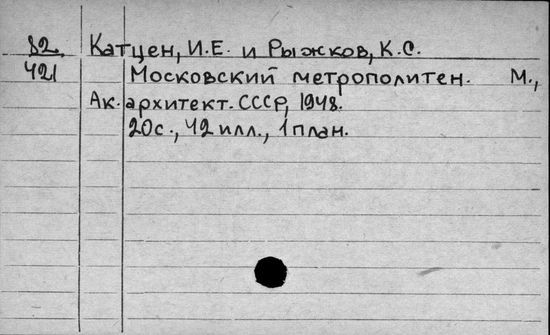 82 Катцен, И.Е. и Рыжков, К.С.
421 Московский метрополитен. М.,
Ак. архитект. СССР, 1948.
20с., 42 илл., 1 план.